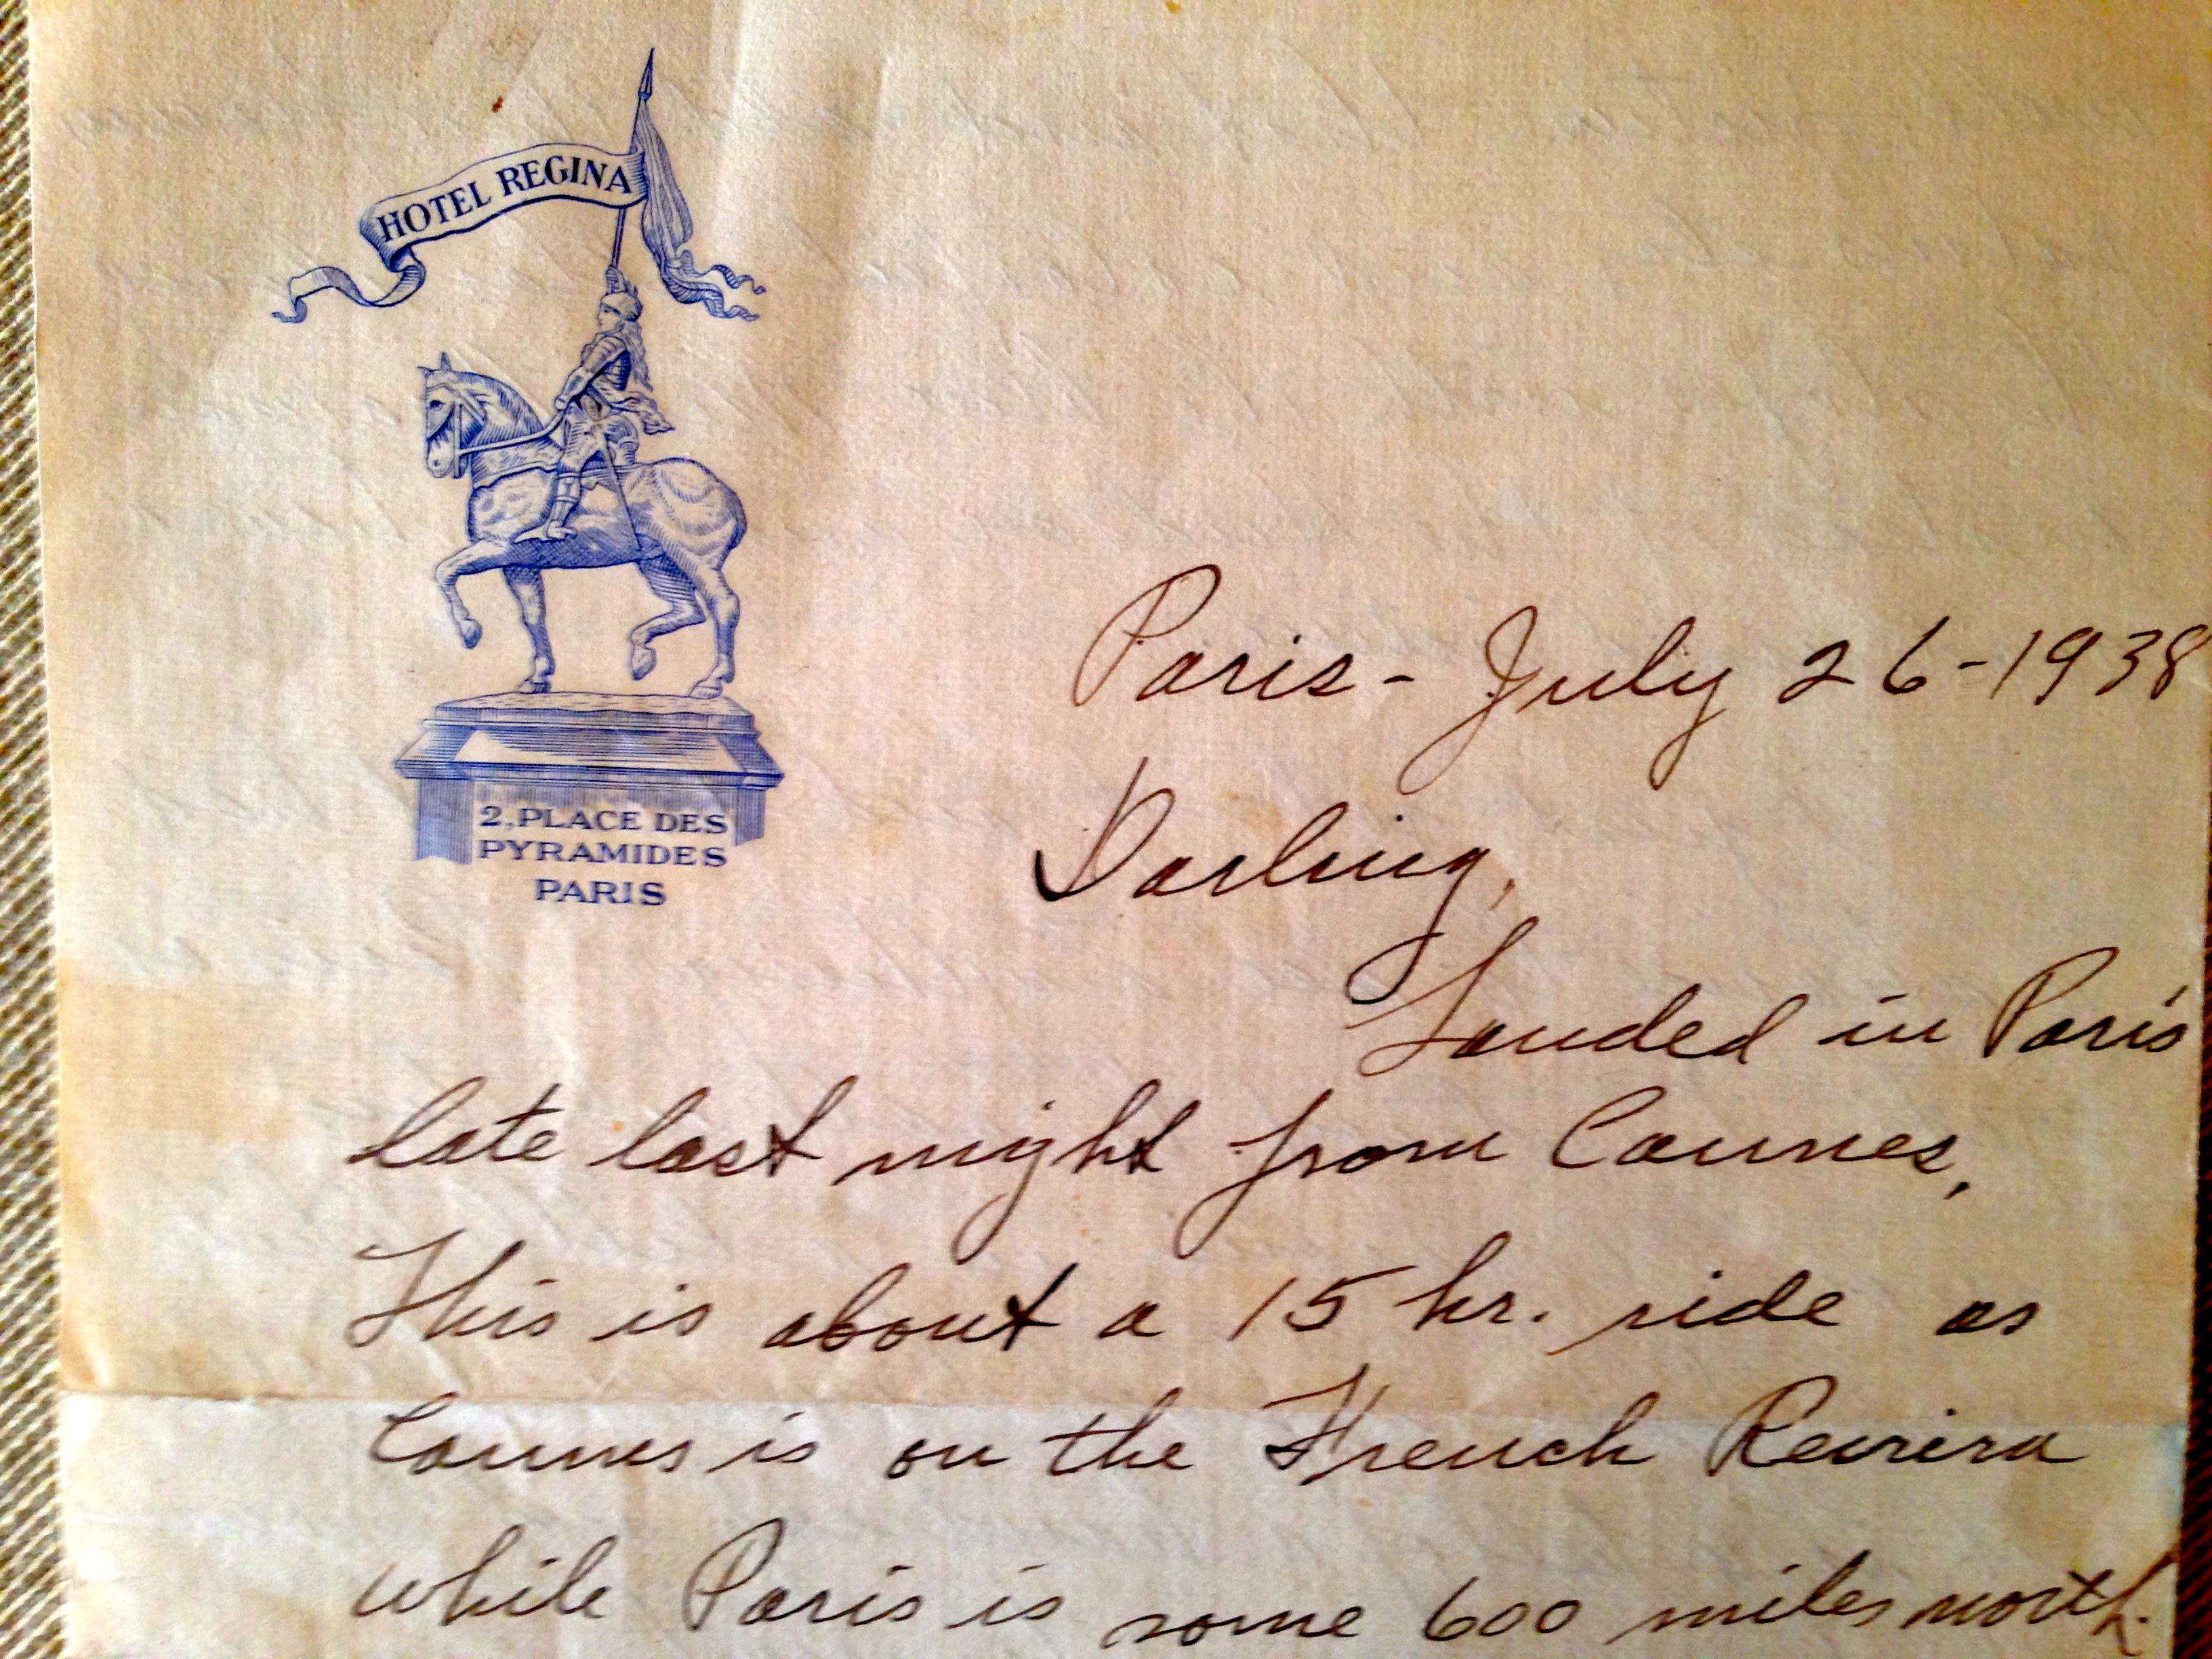 HOTEL REGINA
2, PLACE DES
PYRAMIDES
PARIS
Paris - July 26-1938
Darling,
Landed in Paris
late last night from Cannes,
This is about a 15 hr. ride as
Cannes is on the French Revirra
while Paris is some 600 miles north.